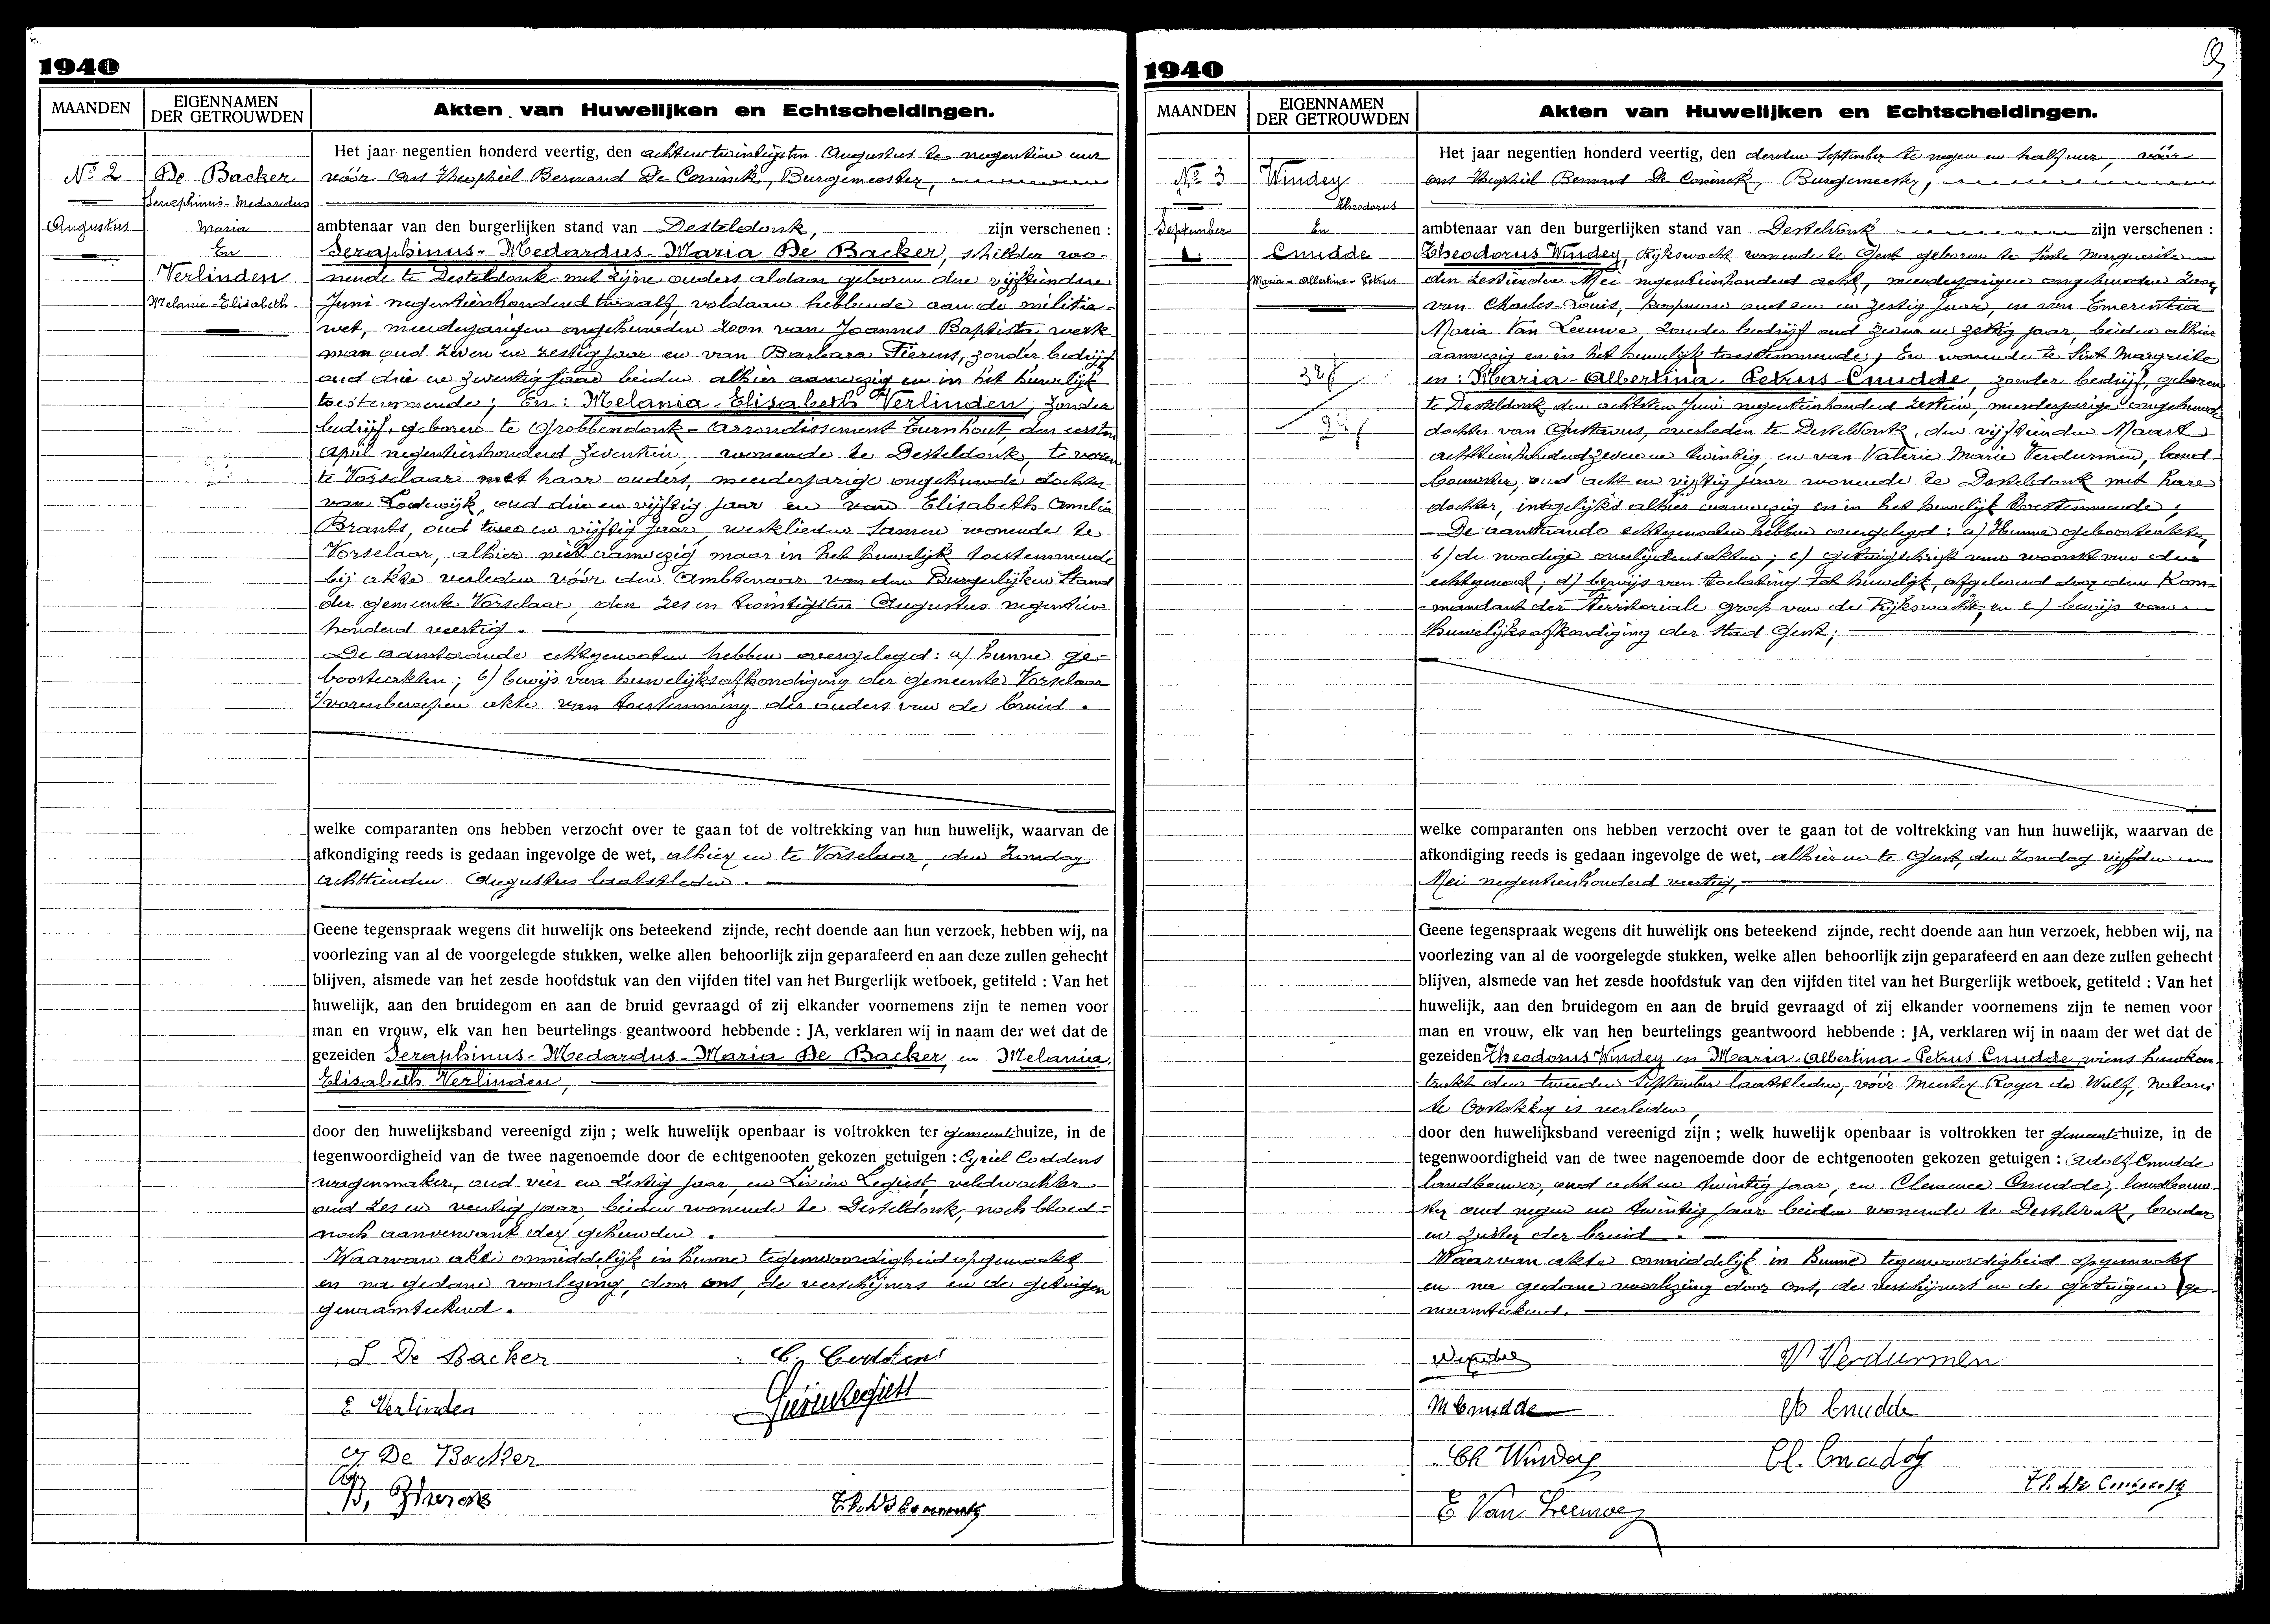 1940
MAANDEN
EIGENNAMEN
DER GETROUWDEN
Akten van Huwelijken en Echtscheidingen.
No 2
Augustus
De Backer
Seraphinus-Medardus
Maria
En
Verlinden
Melania-Elisabeth
Het jaar negentien honderd veertig, den achtentwintigsten Augustus te negentien uur
vóór ons Theophiel Bernard De Coninck, Burgemeester,
ambtenaar van den burgerlijken stand van Desteldonk, zijn verschenen :
Seraphinus-Medardus-Maria De Backer, schilder wo-
nende te Desteldonk met zijne ouders aldaar geboren den vijftienden
Juni negentienhonderd twaalf, voldaan hebbende aan de militie-
wet, meerderjarigen ongehuwden zoon van Joannes Baptista, werk-
man oud zeven en zestig jaar en van Barbara Fierens, zonder bedrijf
oud drie en zeventig jaar beiden alhier aanwezig en in het huwelijk
toestemmende; En: Melania-Elisabeth Verlinden, zonder
bedrijf, geboren te Grobbendonk - Arrondissement Turnhout, den eersten
April negentienhonderd zeventien, wonende te Desteldonk, te voren
te Vorselaar met haar ouders, meerderjarige ongehuwde dochter
van Lodewijk, oud drie en vijftig jaar en van Elisabeth Amelia
Brants, oud twee en vijftig jaar, werklieden samen wonende te
Vorselaar, alhier niet aanwezig maar in het huwelijk toestemmende
bij akte verleden vóór den Ambtenaar van den Burgerlijken Stand
der gemeente Vorselaar, den zes en twintigsten Augustus negentien
honderd veertig.
De aanstaande echtgenooten hebben overgelegd: a) hunne ge-
boorteakten; b) bewijs van huwelijksafkondiging der gemeente Vorselaar
c) vorenberoepen akte van toestemming der ouders van de bruid.
welke comparanten ons hebben verzocht over te gaan tot de voltrekking van hun huwelijk, waarvan de
afkondiging reeds is gedaan ingevolge de wet, alhier en te Vorselaar, den Zondag
achttienden Augustus laatstleden.
Geene tegenspraak wegens dit huwelijk ons beteekend zijnde, recht doende aan hun verzoek, hebben wij, na
voorlezing van al de voorgelegde stukken, welke allen behoorlijk zijn geparafeerd en aan deze zullen gehecht
blijven, alsmede van het zesde hoofdstuk van den vijfden titel van het Burgerlijk wetboek, getiteld : Van het
huwelijk, aan den bruidegom en aan de bruid gevraagd of zij elkander voornemens zijn te nemen voor
man en vrouw, elk van hen beurtelings geantwoord hebbende : JA, verklaren wij in naam der wet dat de
gezeiden Seraphinus-Medardus-Maria De Backer en Melania
Elisabeth Verlinden,
door den huwelijksband vereenigd zijn ; welk huwelijk openbaar is voltrokken ter gemeentehuize, in de
tegenwoordigheid van de twee nagenoemde door de echtgenooten gekozen getuigen : Cyriel Coddens
wagenmaker, oud vier en zestig jaar, en Livien Legiest, veldwachter
oud zes en veertig jaar, beiden wonende te Desteldonk, noch bloed-
noch aanverwant der gehuwden.
Waarvan akte onmiddelijk in hunne tegenwoordigheid opgemaakt
en na gedane voorlezing, door ons, de verschijners en de getuigen
genaamteekend.
S. De Backer
C. Coddens
E Verlinden
Livien Legiest
J De Backer
B, Fierens
Th. De Coninck
1940
MAANDEN
EIGENNAMEN
DER GETROUWDEN
Akten van Huwelijken en Echtscheidingen.
No 3
September
Windey
Theodorus
En
Cnudde
Maria-Albertina-Petrus
Het jaar negentien honderd veertig, den derden September te negen en half uur, vóór
ons Theophiel Bernard De Coninck, Burgemeester,
ambtenaar van den burgerlijken stand van Desteldonk zijn verschenen :
Theodorus Windey, Rijkswacht wonende te Gent geboren te Sinte Marguerite
den zestienden Mei negentienhonderd acht, meerderjarigen ongehuwden zoon
van Charles-Louis, koopman oud een en zestig jaar, en van Emerentia
Maria Van Leeuwe, zonder bedrijf oud zeven en zestig jaar, beiden alhier
aanwezig en in het huwelijk toestemmende, En wonende te Sint Margriete
en: Maria-Albertina-Petrus Cnudde, zonder bedrijf, geboren
te Desteldonk den achtsten Juni negentienhonderd zestien, meerderjarige ongehuwde
dochter van Gustavus, overleden te Desteldonk, den vijftienden Maart
achttienhonderd zeven en twintig, en van Valerie Marie Verdurmen, land-
bouwster, oud acht en vijftig jaar wonende te Desteldonk met hare
dochter, insgelijks alhier aanwezig en in het huwelijk toestemmende;
De aanstaande echtgenooten hebben overgelegd: a) Hunne geboorteakten,
b) de noodige overlijdensakten; c) getuigschrift van woonst van den
echtgenoot; d) bewijs van toelating tot huwelijk, afgeleverd door den Kom-
mandant der territoriale groep van de Rijkswacht en e) bewijs van
huwelijksafkondiging der stad Gent;
welke comparanten ons hebben verzocht over te gaan tot de voltrekking van hun huwelijk, waarvan de
afkondiging reeds is gedaan ingevolge de wet, alhier en te Gent, den Zondag vijfden
Mei negentienhonderd veertig,
Geene tegenspraak wegens dit huwelijk ons beteekend zijnde, recht doende aan hun verzoek, hebben wij, na
voorlezing van al de voorgelegde stukken, welke allen behoorlijk zijn geparafeerd en aan deze zullen gehecht
blijven, alsmede van het zesde hoofdstuk van den vijfden titel van het Burgerlijk wetboek, getiteld : Van het
huwelijk, aan den bruidegom en aan de bruid gevraagd of zij elkander voornemens zijn te nemen voor
man en vrouw, elk van hen beurtelings geantwoord hebbende : JA, verklaren wij in naam der wet dat de
gezeiden Theodorus Windey en Maria-Albertina-Petrus Cnudde wiens huwkon-
trakt den tweeden September laatstleden, vóór Meester Roger de Wulf, notaris
te Oostakker is verleden,
door den huwelijksband vereenigd zijn ; welk huwelijk openbaar is voltrokken ter gemeentehuize, in de
tegenwoordigheid van de twee nagenoemde door de echtgenooten gekozen getuigen : Adolf Cnudde
landbouwer, oud acht en twintig jaar, en Clemence Cnudde, landbouw-
ster oud negen en twintig jaar beiden wonende te Desteldonk, broeder
en zuster der bruid.
Waarvan akte onmiddelijk in hunne tegenwoordigheid opgemaakt
en na gedane voorlezing door ons, de verschijners en de getuigen ge-
naamteekend.
Windey
V Verdurmen
M Cnudde
A Cnudde
Ch Windey
Cl. Cnudde
Th. De Coninck
E Van Leeuwe